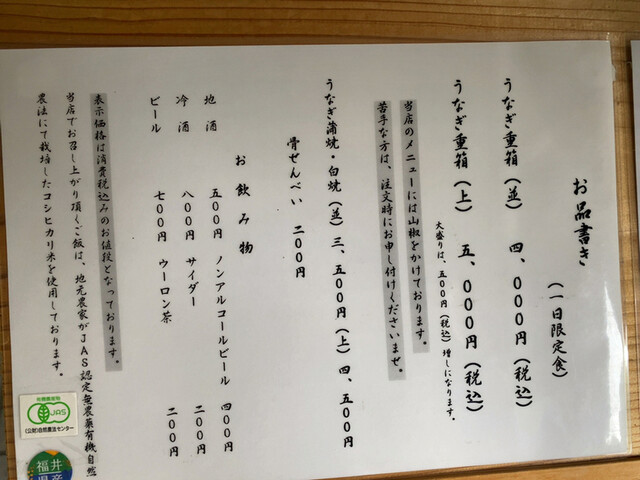 お品書き
（一日限定食）
うなぎ重箱（並） 四、〇〇〇円（税込）
うなぎ重箱（上） 五、〇〇〇円（税込）
大盛りは、五〇〇円（税込）増しになります。
当店のメニューには山椒をかけております。
苦手な方は、注文時にお申し付けくださいませ。
うなぎ蒲焼・白焼（並）三、五〇〇円（上）四、五〇〇円
骨せんべい 二〇〇円
お飲み物
地酒 五〇〇円 ノンアルコールビール 四〇〇円
冷酒 八〇〇円 サイダー 二〇〇円
ビール 七〇〇円 ウーロン茶 二〇〇円
表示価格は消費税込みのお値段となっております。
当店でお召し上がり頂くご飯は、地元農家がJAS認定無農薬有機自然
農法にて栽培したコシヒカリ米を使用しております。
有機農産物
JAS
(公財)自然農法センター
福井
県産